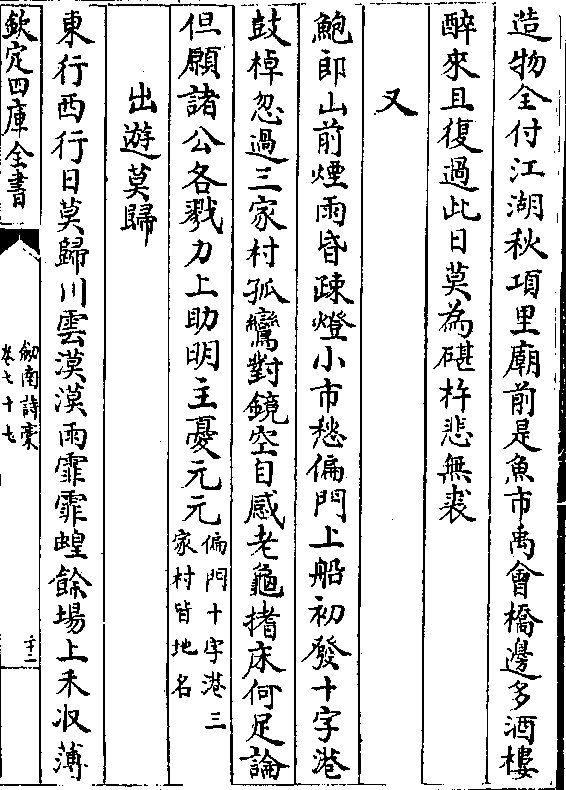 造物全付江湖秋項里廟前是魚市禹會橋邊多酒樓
醉來且復過此日莫為碪杵悲無裘
又
鮑郎山前煙雨昏疎燈小市愁偏門上船初發十字港
鼓棹忽過三家村孤鸞對鏡空自感老龜搘床何足論
但願諸公各戮力上助明主憂元元偏門十字港三
家村皆地名
出遊莫歸
東行西行日莫歸川雲漠漠雨霏霏蝗餘場上禾収薄
欽定四庫全書
劒南詩稾
卷七十七
十二